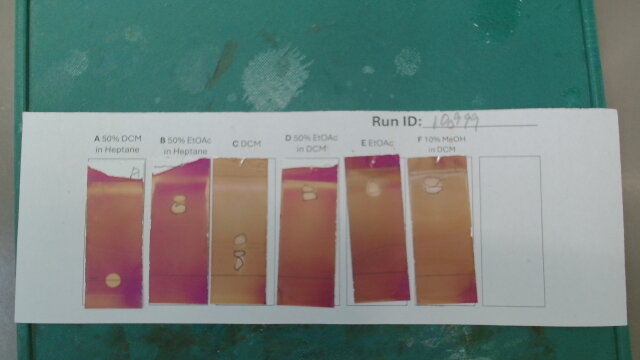 Run ID: 190999
A 50% DCM
in Heptane
B 50% EtOAc
in Heptane
C DCM
D 50% EtOAc
in DCM
E EtOAc
F 10% MeOH
in DCM